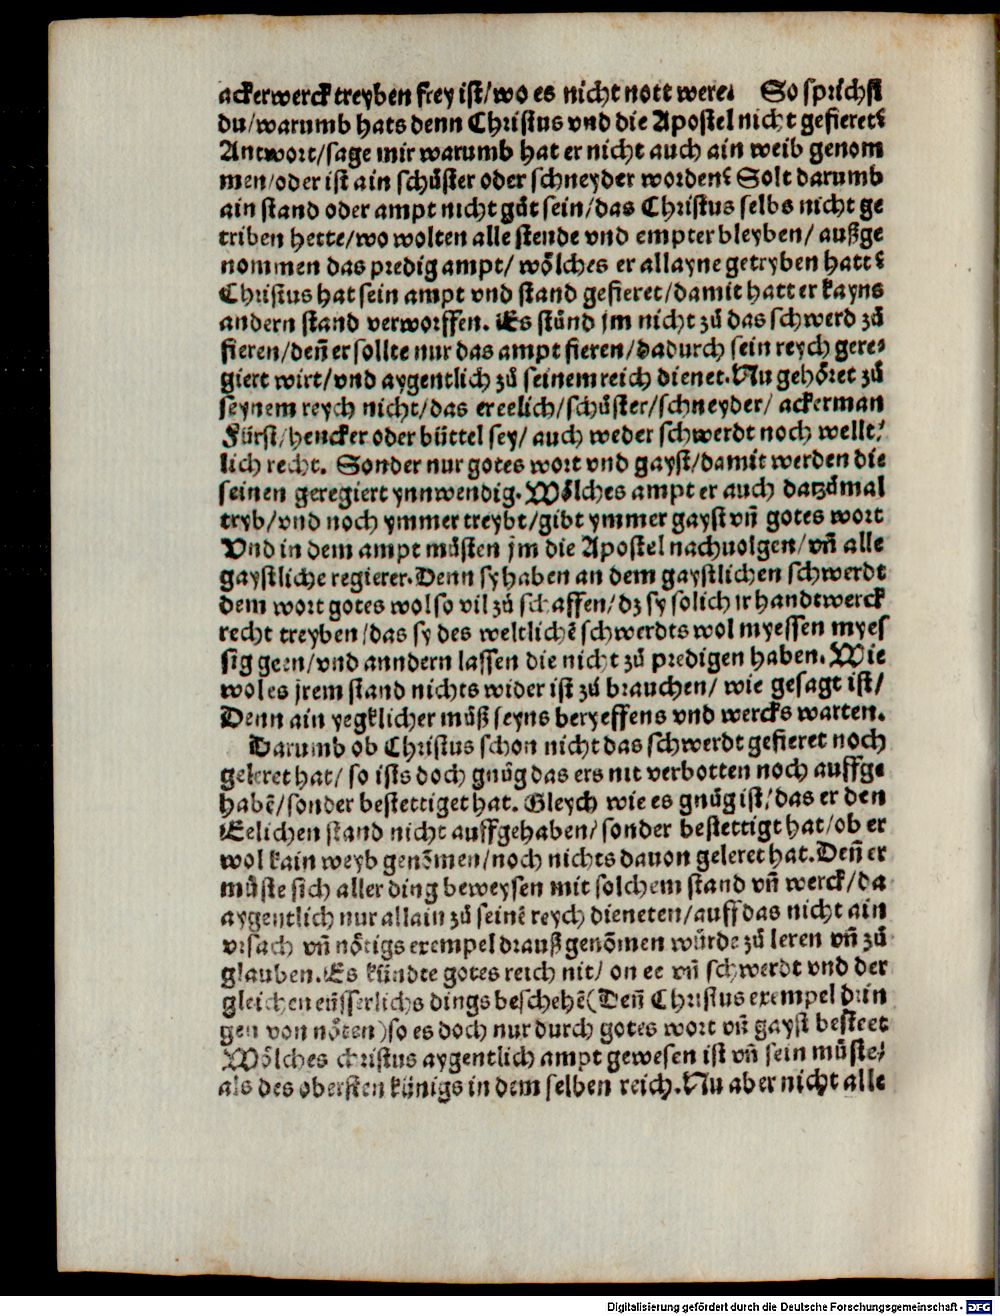 ackerwerck treyben frey ist/wo es nicht nott were. So sprichst
du/warumb hats denn Christus vnd die Apostel nicht gefieret?
Antwort/sage mir warumb hat er nicht auch ain weib genom
men/oder ist ain schůster oder schneyder worden? Solt darumb
ain stand oder ampt nicht gůt sein/das Christus selbs nicht ge
triben hette/wo wolten alle stende vnd empter bleyben/ außge
nommen das predig ampt/ wőlches er allayne getryben hatt?
Christus hat sein ampt vnd stand gefieret/damit hatt er kayns
andern stand verworffen. Es stůnd jm nicht zů das schwerd zů
fieren/deñ er sollte nur das ampt fieren/dadurch sein reych gere⸗
giert wirt/vnd aygentlich zů seinem reich dienet. Nu gehőret zů
seynem reych nicht/das er eelich/schůster/schneyder/ ackerman
Fürst/hencker oder büttel sey/ auch weder schwerdt noch wellt⸗
lich recht. Sonder nur gotes wort vnd gayst/damit werden die
seinen geregiert ynnwendig. Wőlches ampt er auch datzůmal
tryb/vnd noch ymmer treybt/gibt ymmer gayst vñ gotes wort
Vnd in dem ampt můsten jm die Apostel nachuolgen/vñ alle
gaystliche regierer. Denn sy haben an dem gaystlichen schwerdt
dem wort gotes wol so vil zů schaffen/dz sy solich ir handtwerck
recht treyben/das sy des weltlichē schwerdts wol myessen myes
sig geen/vnd anndern lassen die nicht zů predigen haben. Wie
wol es jrem stand nichts wider ist zů brauchen/ wie gesagt ist/
Denn ain yegklicher můß seyns beryeffens vnd wercks warten.
Darumb ob Christus schon nicht das schwerdt gefieret noch
geleret hat/ so ists doch gnůg das ers nit verbotten noch auffge
habē/sonder bestettiget hat. Gleych wie es gnůg ist/das er den
Eelichen stand nicht auffgehaben/sonder bestettigt hat/ob er
wol kain weyb genōmen/noch nichts dauon geleret hat. Deñ er
můste sich aller ding beweysen mit solchem stand vñ werck/da
aygentlich nur allain zů seinē reych dieneten/auff das nicht ain
vrsach vñ nőtigs exempel drauß genōmen würde zů leren vñ zů
glauben. Es kündte gotes reich nit/ on ee vñ schwerdt vnd der
gleichen eüsserlichs dings beschehē(Deñ Christus exempel drin
gen von nőten)so es doch nur durch gotes wort vñ gayst besteet
Wőlches christus aygentlich ampt gewesen ist vñ sein můste⸗
als des obersten künigs in dem selben reich. Nu aber nicht alle
Digitalisierung gefördert durch die Deutsche Forschungsgemeinschaft - DFG